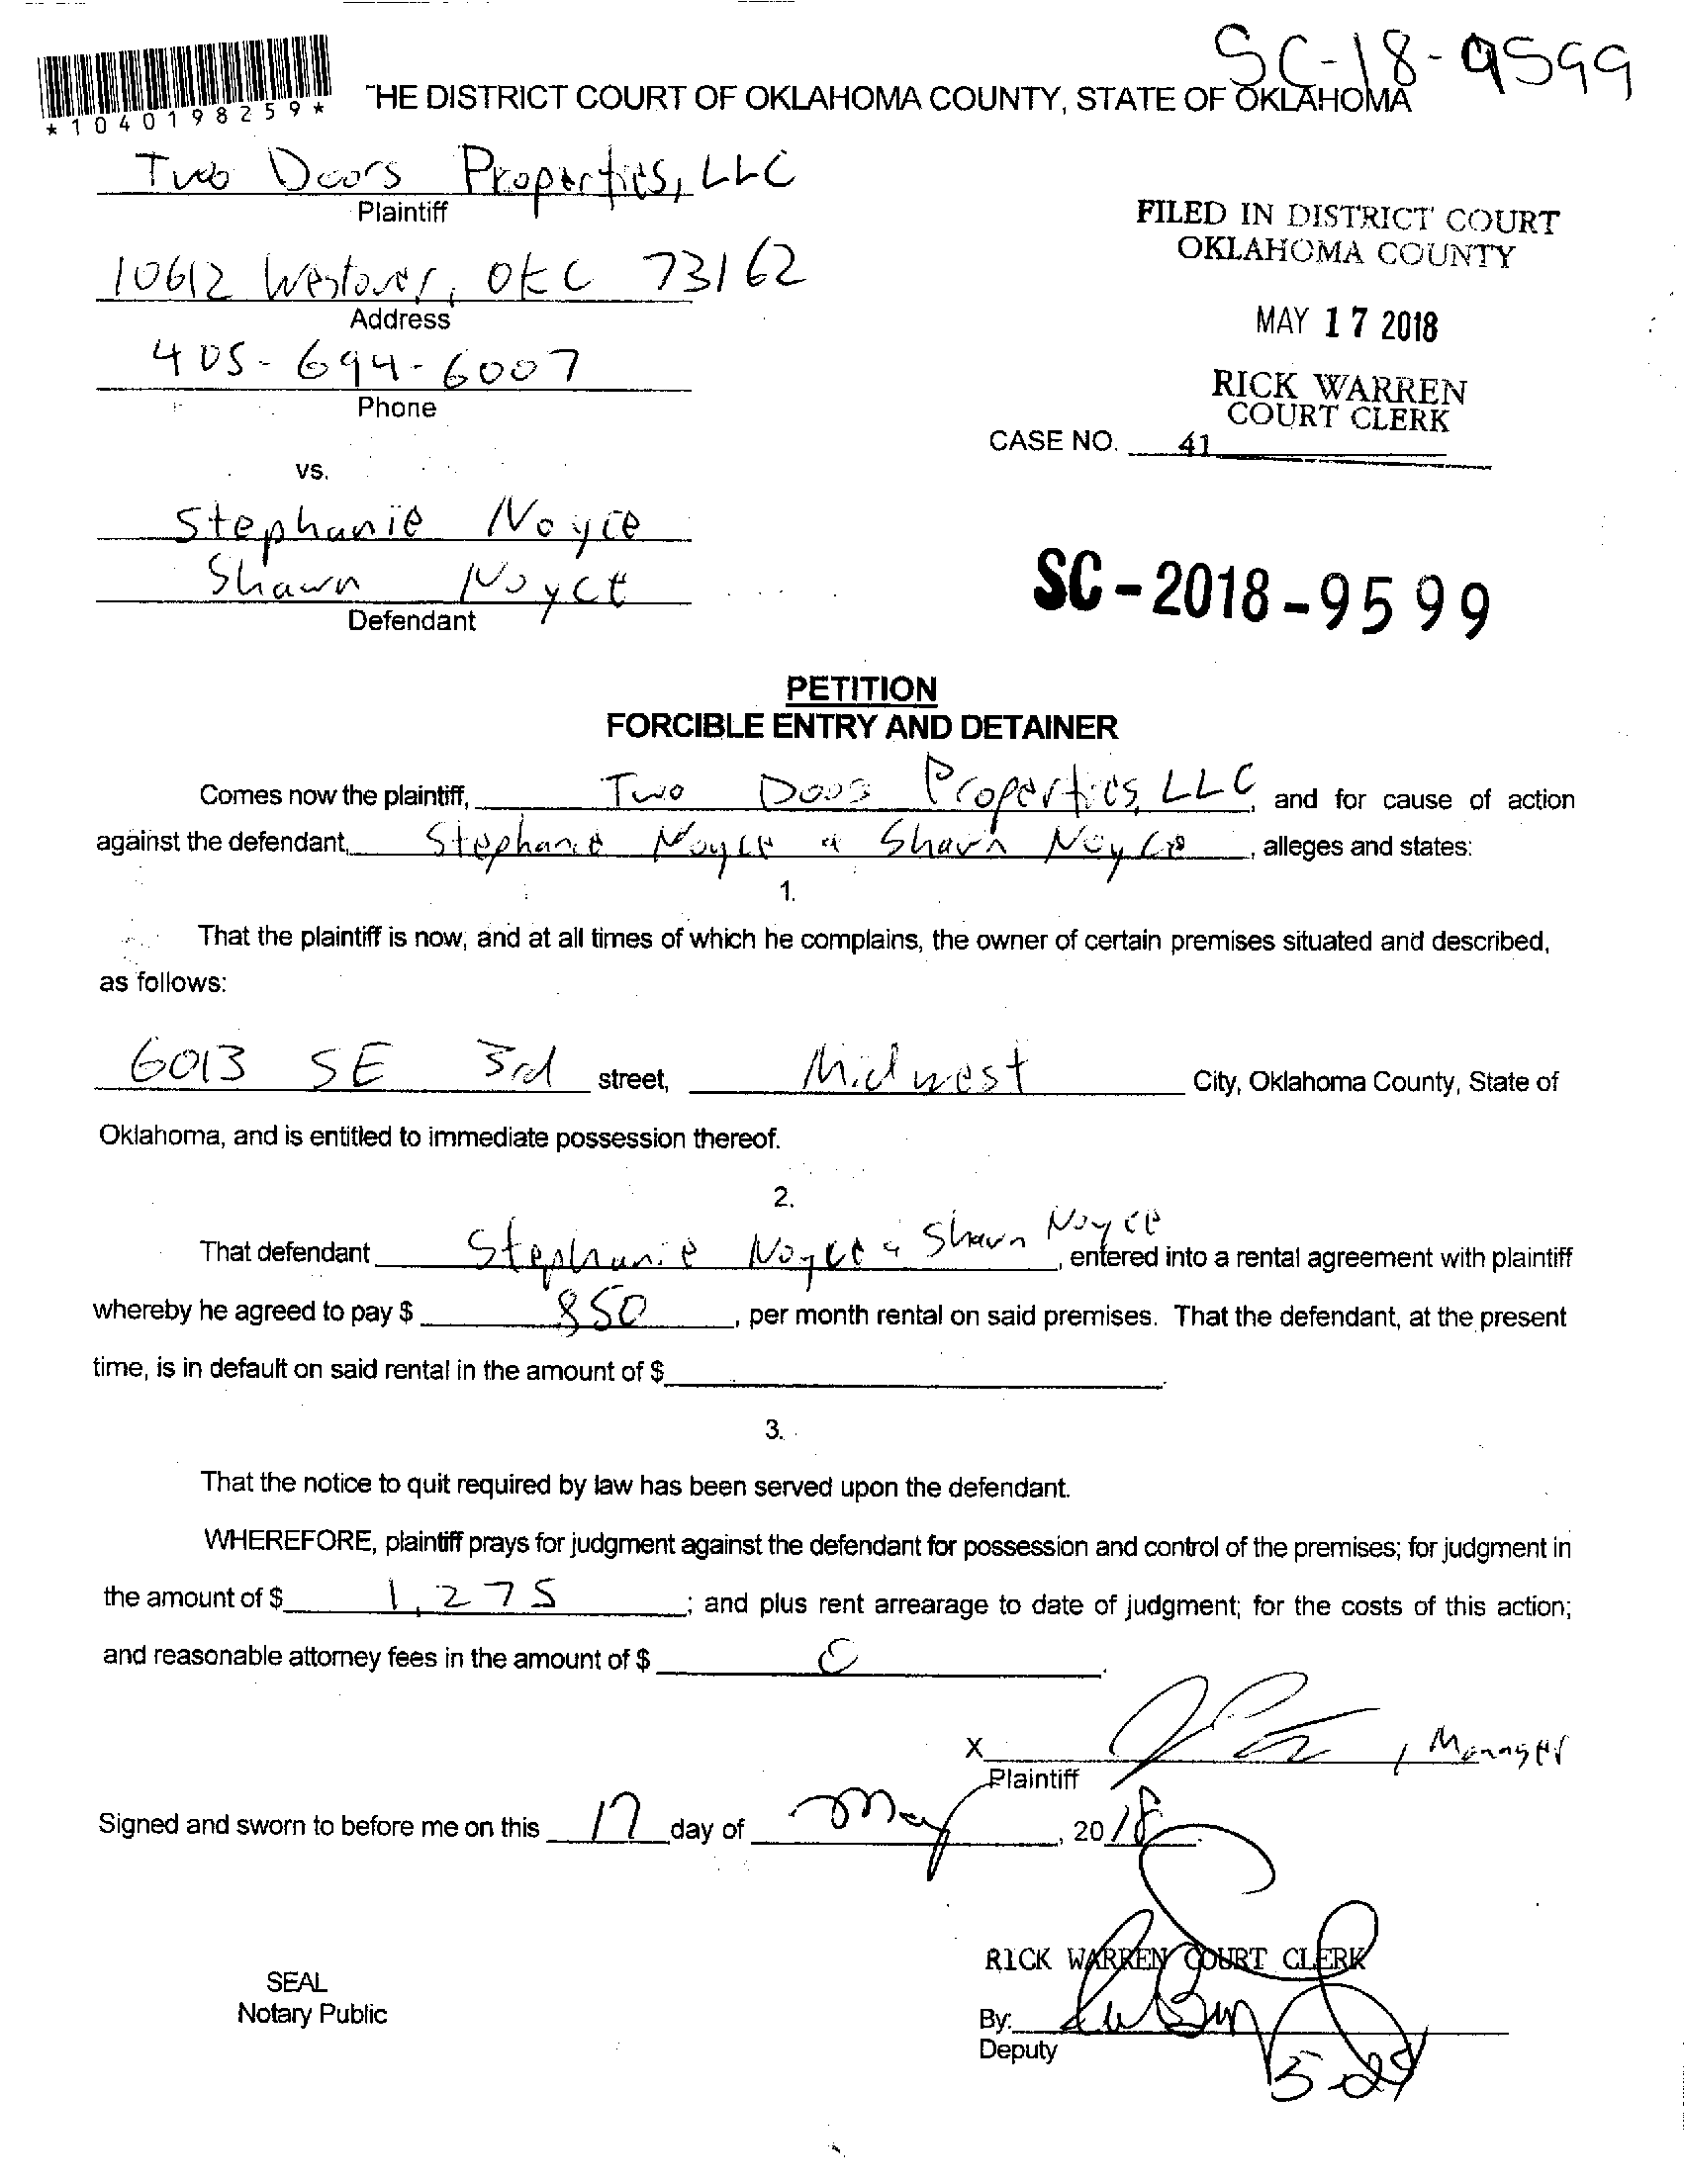 SC-18-9599
*1040198259*
THE DISTRICT COURT OF OKLAHOMA COUNTY, STATE OF OKLAHOMA
Two Doors Properties, LLC
Plaintiff
FILED IN DISTRICT COURT
OKLAHOMA COUNTY
10612 Westover, OKC 73162
Address
MAY 17 2018
405-694-6007
Phone
RICK WARREN
COURT CLERK
CASE NO. 41
vs.
Stephanie Noyce
Shawn Noyce
Defendant
SC-2018-9599
PETITION
FORCIBLE ENTRY AND DETAINER
Comes now the plaintiff, Two Doors Properties, LLC, and for cause of action
against the defendant, Stephanie Noyce & Shawn Noyce, alleges and states:
1.
That the plaintiff is now, and at all times of which he complains, the owner of certain premises situated and described,
as follows:
6013 SE 3rd street, Midwest City, Oklahoma County, State of
Oklahoma, and is entitled to immediate possession thereof.
2.
That defendant Stephanie Noyce & Shawn Noyce, entered into a rental agreement with plaintiff
whereby he agreed to pay $ 850, per month rental on said premises. That the defendant, at the present
time, is in default on said rental in the amount of $
3.
That the notice to quit required by law has been served upon the defendant.
WHEREFORE, plaintiff prays for judgment against the defendant for possession and control of the premises; for judgment in
the amount of $ 1,275; and plus rent arrearage to date of judgment; for the costs of this action;
and reasonable attorney fees in the amount of $ 0.
X , Manager
Plaintiff
Signed and sworn to before me on this 17 day of May, 2018.
RICK WARREN COURT CLERK
SEAL
Notary Public
By:
Deputy